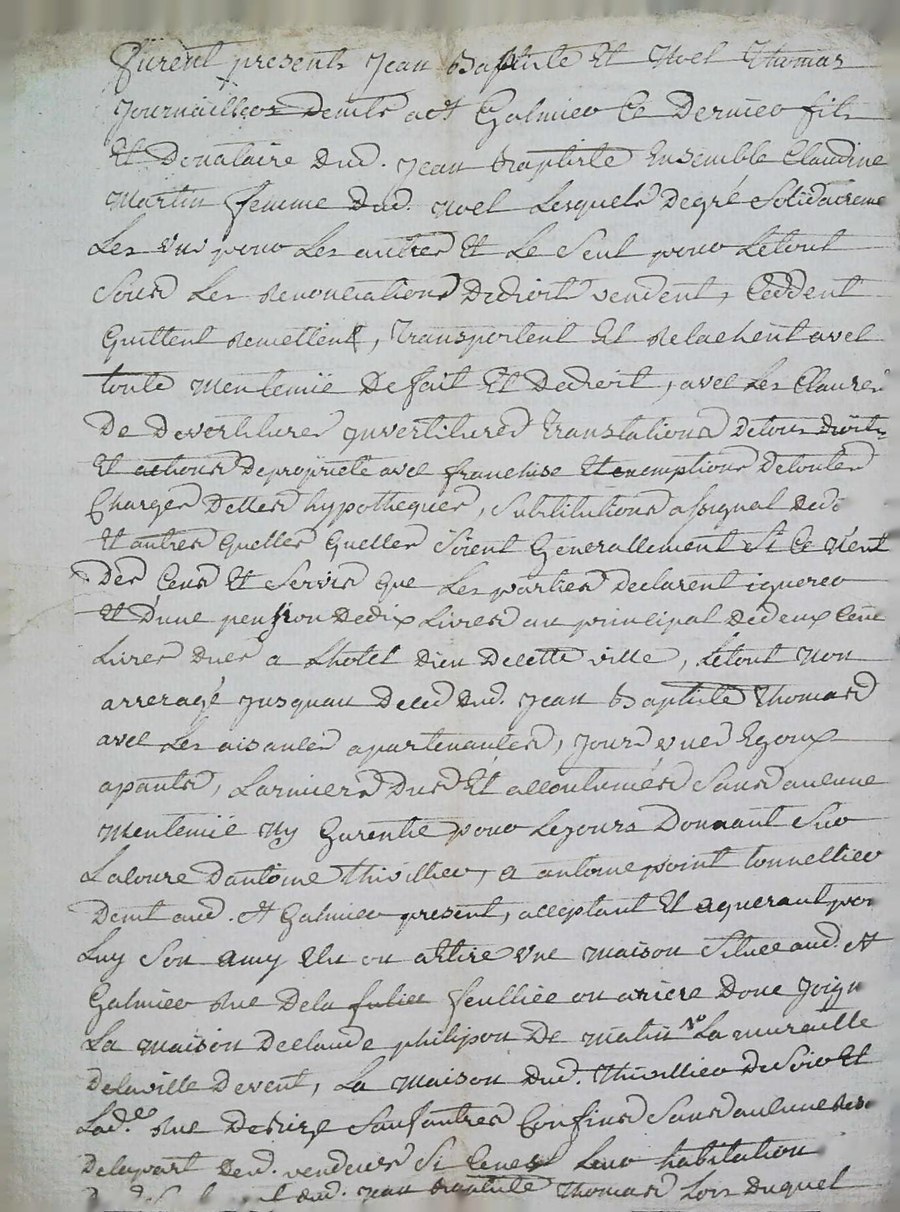 furent presents Jean Baptiste Et Noel Thomas
Journailliers demts a St Galmier Ce Dernier fils
Et Donataire dud. Jean Baptiste Ensemble Claudine
Martin femme dud. Noel Lesquels Degré Solidaireme
Les uns pour Les autres Et Le Seul pour Letout
Sous Les renonciations Dedroit vendent, Ceddent
Quittent remettent, Transportent Et relachent avec
toute mentemüe De fait Et Dedroit, avec Les Clauses
De Devertitures Invertitures Translations detous droits
Et actions Depropriete avec franchise Et exemptions Detoutes
Charges Dettes hypotheques, Substitutions assignat
Et autres quelles quelles Soient Generallement Si Ce n'ent
Des Cens Et Servis que Les parties Declarent ignorer
Et Dune pension Dedix Livres au principal Dedeux Cent
Livres Dues a Lhotel Dieu Decette ville, Letout Non
arreragé Jusquau Deced dud. Jean Baptiste Thomas
avec Les aisances apartenances, Jours vues Egoux
apants, Larmiers Dus Et accoutumés Sans aucune
Mentemüe Ny Garentie pour Lejours Donnant Sur
Lacoure Dantoine Thivillier, a antoine point tonnellier
Demt aud. St Galmier present, acceptant Et aquerant pour
Luy Son amy Elu ou a Elire une maison Scituee aud. St
Galmier Rue Dela feulliee ou ariere Done Joign
La maison Declaude philipon De matin La muraille
Delaville Devent, La maison dud. Thivillier De Soir Et
Lad.e Rue Debize Saufautres Confins Sans aucune
Delapart Desd. vendeurs Si Cenest Leur habitation
dud. Jean Baptiste Thomas Lors Duquel